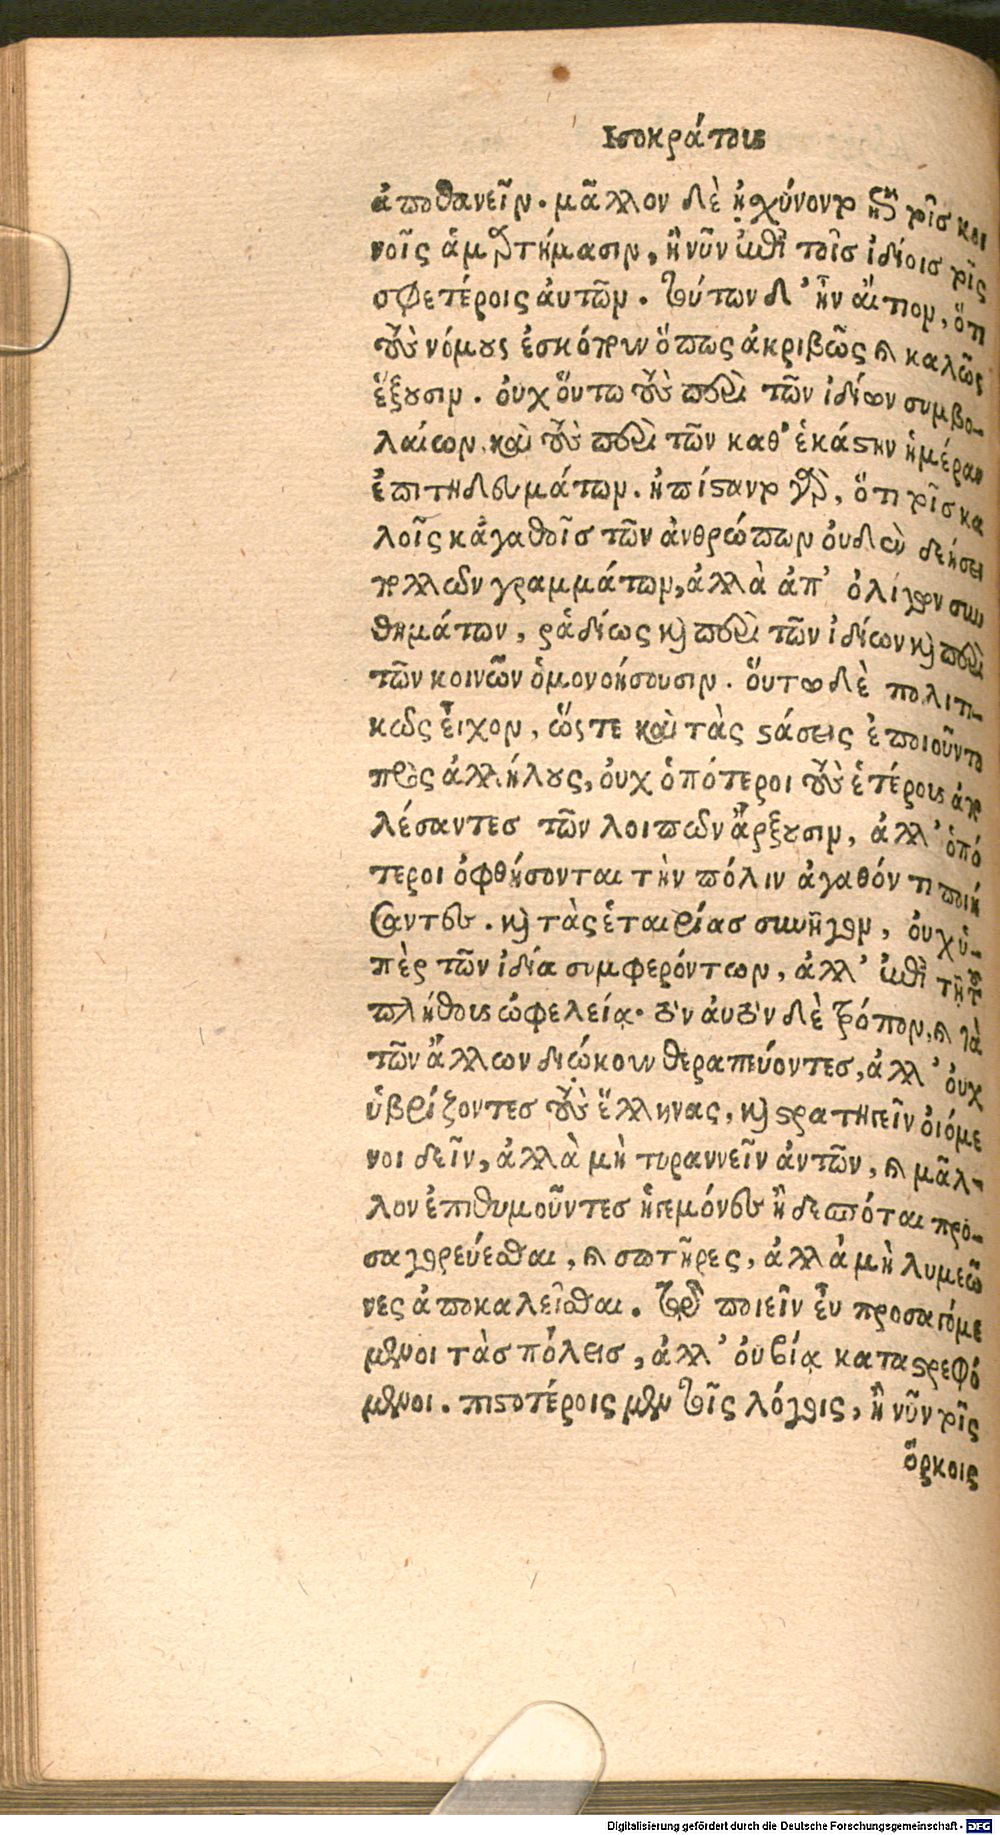 Ἰσοκράτους
ἀποθανεῖν. μᾶλλον δὲ ᾐσχύνοντο ἐπὶ τοῖς κοι
νοῖς ἁμαρτήμασιν, ἢ νῦν ἐπὶ τοῖς ἰδίοις τοῖς
σφετέροις αὐτῶν. τούτων δ' ἦν αἴτιον, ὅτι
τοὺς νόμους ἐσκόπουν ὅπως ἀκριβῶς καὶ καλῶς
ἕξουσιν. οὐχ οὕτω τοὺς περὶ τῶν ἰδίων συμβο-
λαίων, καὶ τοὺς περὶ τῶν καθ' ἑκάστην ἡμέραν
ἐπιτηδευμάτων. ἠπίσταντο γὰρ, ὅτι τοῖς κα
λοῖς κἀγαθοῖς τῶν ἀνθρώπων οὐδὲν δεήσει
πολλῶν γραμμάτων, ἀλλὰ ἀπ' ὀλίγων συν
θημάτων, ῥᾳδίως καὶ περὶ τῶν ἰδίων καὶ περὶ
τῶν κοινῶν ὁμονοήσουσιν. οὕτω δὲ πολιτι-
κῶς εἶχον, ὥστε καὶ τὰς στάσεις ἐποιοῦντο
πρὸς ἀλλήλους, οὐχ ὁπότεροι τοὺς ἑτέρους ἀπο
λέσαντες τῶν λοιπῶν ἄρξουσιν, ἀλλ' ὁπό
τεροι ὀφθήσονται τὴν πόλιν ἀγαθόν τι ποιή
σαντες. καὶ τὰς ἑταιρίας συνῆγον, οὐχ ὑ-
πὲρ τῶν ἰδίᾳ συμφερόντων, ἀλλ' ἐπὶ τῇ τοῦ
πλήθους ὠφελείᾳ. τὸν αὐτὸν δὲ τρόπον, καὶ τὰ
τῶν ἄλλων διῴκουν θεραπεύοντες, ἀλλ' οὐχ
ὑβρίζοντες τοὺς ἕλληνας, καὶ στρατηγεῖν οἰόμε
νοι δεῖν, ἀλλὰ μὴ τυραννεῖν αὐτῶν, καὶ μᾶλ-
λον ἐπιθυμοῦντες ἡγεμόνες ἢ δεσπόται προ-
σαγορεύεσθαι, καὶ σωτῆρες, ἀλλὰ μὴ λυμεῶ
νες ἀποκαλεῖσθαι. τῷ ποιεῖν εὖ προσαγόμε
μενοι τὰς πόλεις, ἀλλ' οὐ βίᾳ καταστρεφό
μενοι. πιστοτέροις μὲν τοῖς λόγοις, ἢ νῦν τοῖς
ὅρκοις
Digitalisierung gefördert durch die Deutsche Forschungsgemeinschaft - DFG